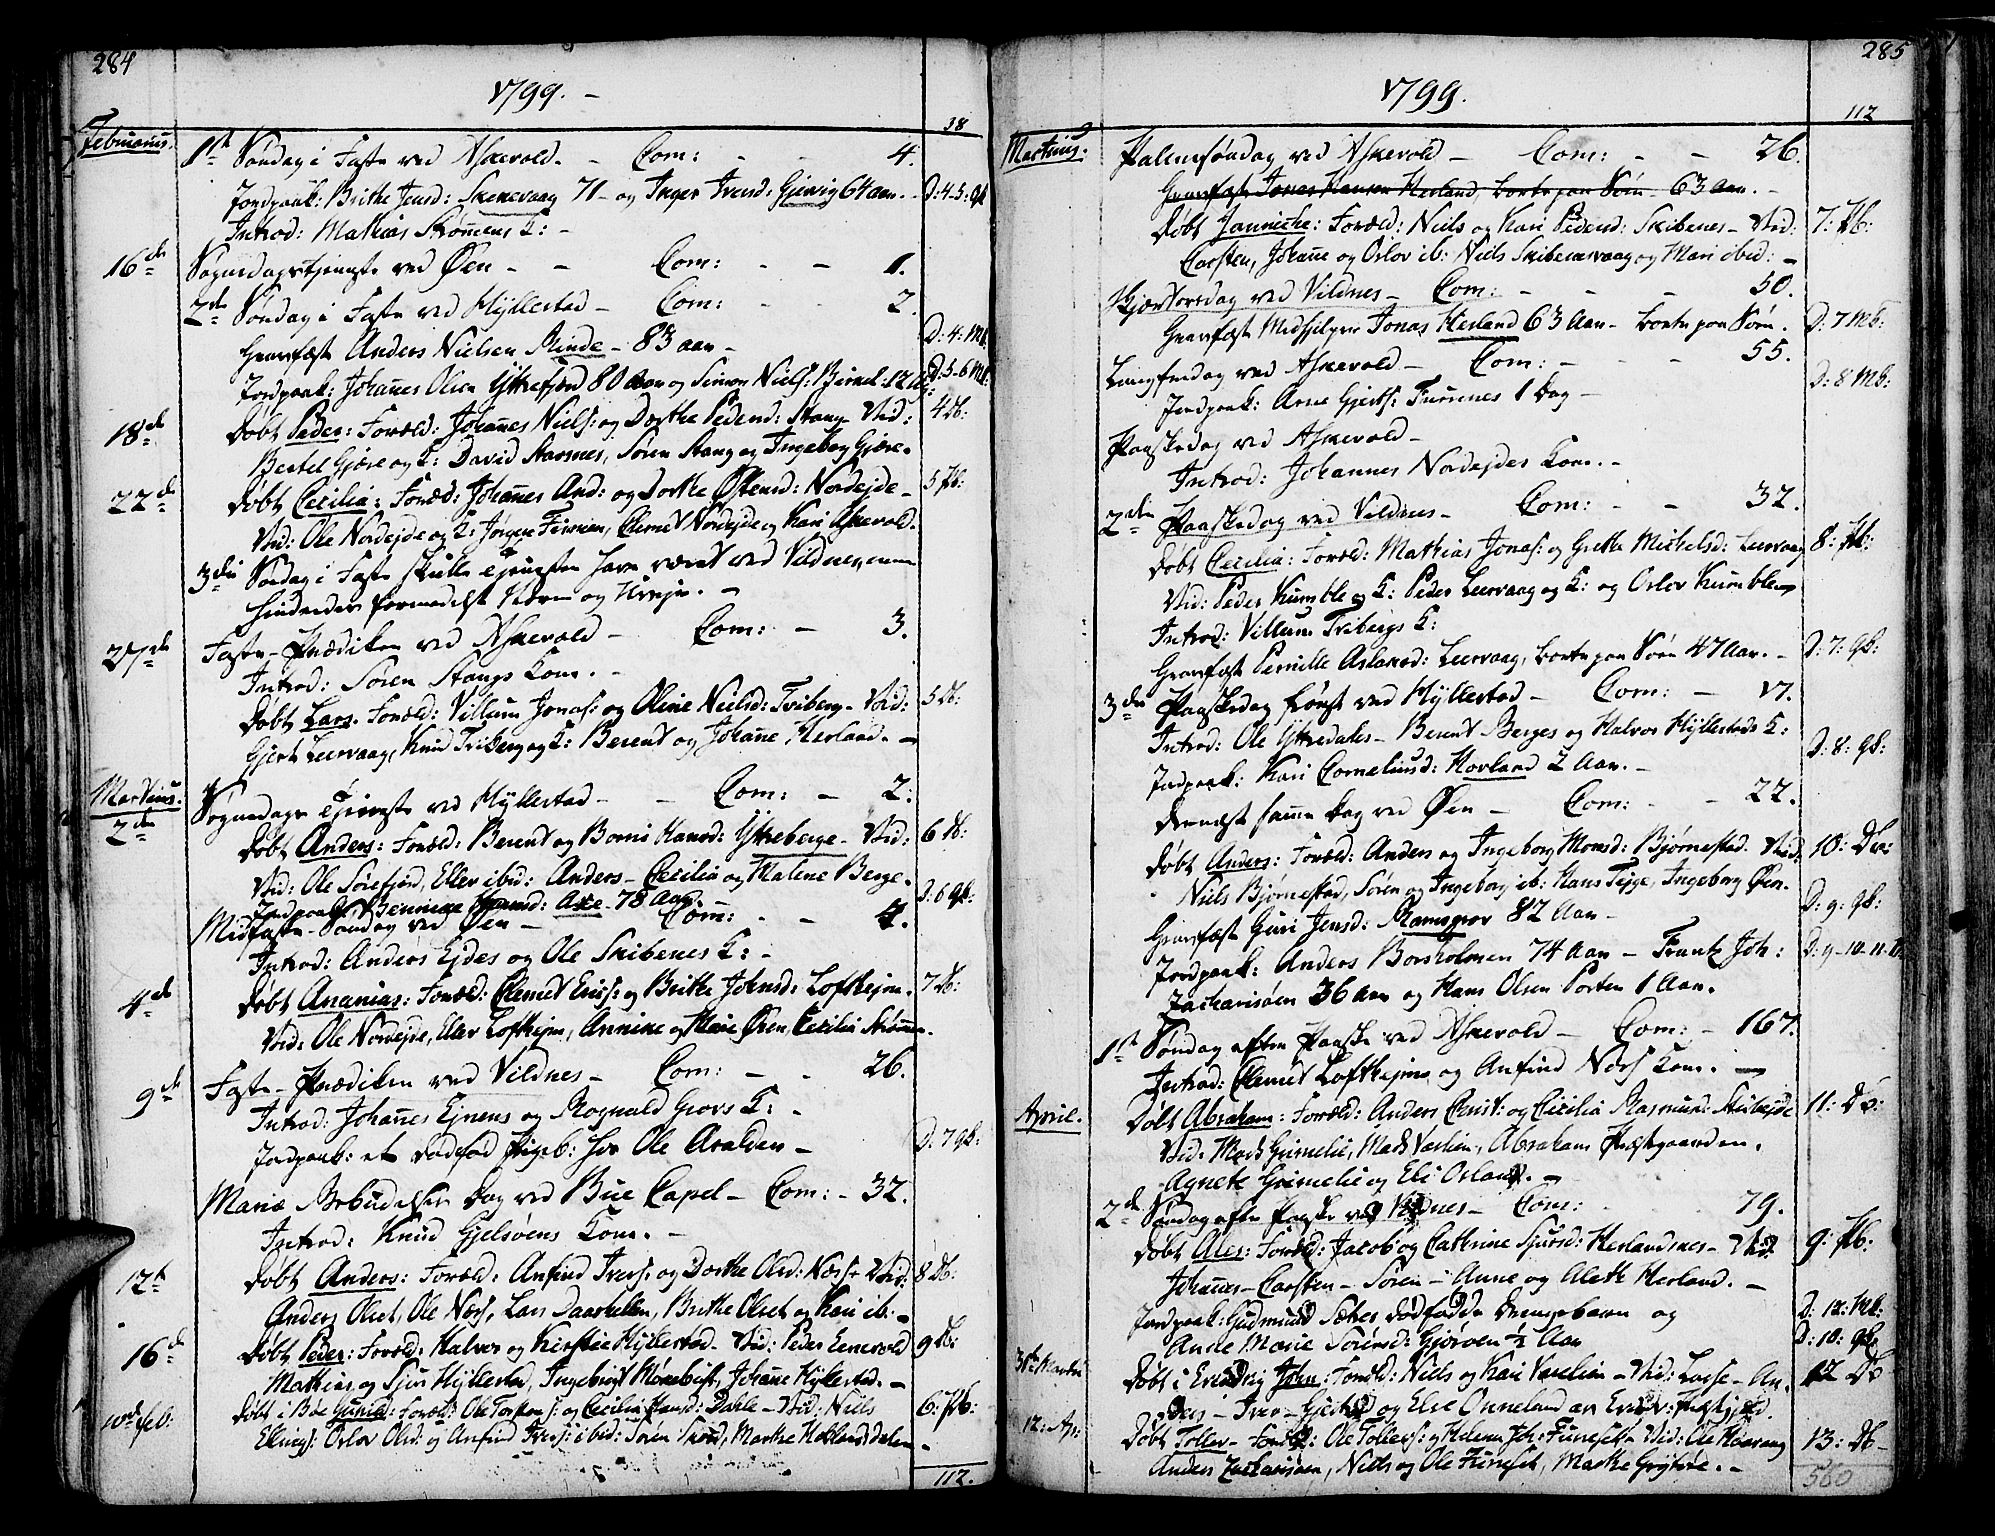 284
1799. –
38
Februarius. 1ste Søndag i Faste ved Askevold. – Com: – – 4.
Jordpaak: Brithe Jensd: Skenevaag 71 – og Inger Iversd: Gjervig 64 aar. – D: 4-5: Qk
Introd: Mathias Strømens K: –
16de Søgnedagstjeneste ved Øen – – Com: – – 1.
2den Søndag i Faste ved Hyllestad – Com: – – 2.
Gravfæst Anders Nielsen Rinde – 83 aar – D: 4: Mk:
Jordpaak: Johannes Olsen Yttrefjord 80 Aar og Simon Niels: D: 5-6 Mk:
18de Døbt Peder: Foræld: Johannes Niels: og Dorthe Pedersd: Stang – Vid: 4 Db:
Bertel Gjøre og K: David Stavsnes, Søren Stang og Ingeborg Gjøre.
22de Døbt Cecilia: Foræld: Johannes And: og Dorthe Østensd: Nordejde – 5 Pb:
Vid: Ole Nordejde og K: Jørgen Clemet Nordejde og Kari Askevold.
3die Søndag i Faste skulle Tjenesten have været ved Vildnes, men
hindredes formedelst Storm og
27de Faste-Prædiken ved Askevold – Com: – 3.
Introd: Søren Stangs Kone. –
Døbt Lars. Foræld: Villum Jonas: og Oline Nielsd: Triberg – Vid: 5 Db:
Gjert Leervaag, Knud Triberg og K: Berent og Johanne Herland. –
Martius. Søgnedags Tjeneste ved Hyllestad – – Com: – 2:
2den Døbt Anders: Foræld: Berent og Borni Hansd: Yttreberge – Vid: 6 Db:
Vid: Ole Sørefjord, Eller ibid: Anders – Cecilia og Malene Berge.
Jordpaak: Axe 78 Aar. D: 6 Qk:
Midfaste-Søndag ved Øen – Com: – – 4.
Introd: Anders Ejdes og Ole Skibenes K: –
4de Døbt Ananias: Foræld: Clemet Erics: og Brithe Johnsd: Lofthejm. 7 Db:
Vid: Ole Nordejde, Eller Loftheim, Annine og Marie Øren, Cecilia Strømen.
9de Faste-Prædiken ved Vildnes – Com: – – 26.
Introd: Johannes Ejnens og Rognald Grovs K: –
Jordpaak: et dødfød Pigeb: for Ole Aralden – D: 7 Qk:
Mariæ Bebudelses Dag ved Bue Capel – Com: – 32.
Introd: Knud Gjelsøens Kone. –
12te Døbt Anders: Foræld: Anfind Ivers: og Dorthe Olsd: Næss – Vid: 8 Db:
Anders Olset, Ole Næss, Lars Brithe Olset og Kari ib. –
16de Døbt Peder: Foræld: Halvor og Kirstie Hyllestad – Vid: Peder 9 Db:
Mathias og Sjur Hyllestad, Johanne Hyllestad. –
10de feb: Døbt i Bøe Gunild: Foræld: Ole og Cecilia Hansd: Dahle – Vid: Niels 6: Pb:
Ellings: Orlov Olsd: og Anfind Ivers: ibid: Søren
112.
285
1799.
112
Martius. Palmesøndag ved Askevold – Com: – – 26.
Gravfæst Jonas Hansen Herland, borte paa Søen – 63 Aar. –
Døbt Janniche: Foræld: Niels og Kari Pedersd: Skibenes – Vid: 7: Pb:
Carsten, Johanne og Orlov ib: Niels Skibenesvaag og Mari ibid: –
Skjærtorsdag ved Vildnes – Com: – – 50.
Gravfæst Medhjelper Jonas Herland 63 Aar – borte paa Søen. D: 7 Mk:
Langfredag ved Askevold – Com: – – 55.
Jordpaak: Arne Gjerts: Furenes 1 Dag – D: 8 Mk:
Paaskedag ved Askevold –
Introd: Johannes Nordejdes Kone. –
2den Paaskedag ved Vildnes – Com: – – 32.
Døbt Cecilia: Foræld: Mathias Jonas: og Grethe Michelsd: Leervaag 8: Pb:
Vid: Peder Kumble og K: Peder Leervaag og K: og Orlov Kumble
Introd: Villum Tribergs K:
Gravfæst Pernille Aslaksd: Leervaag, borte paa Søen 47 Aar. – D: 7: Qk:
3die Paaskedag først ved Hyllestad – Com: – 17.
Introd: Ole Yttredals – Berent Berges og Halvor Hyllestads K:
Jordpaak: Kari Corneliusd: Hovland 2 Aar. – D: 8: Qk:
dernæst samme dag ved Øen – Com: – – 22.
Døbt Anders: Foræld: Anders og Ingeborg Monsd: Bjørnestad. Vid: 10: Db:
Niels Bjørnestad, Søren og Ingeborg ib: Hans Tejge, Ingeborg Øen.
Gravfæst Guri Jensd: Ramsgrov 82 Aar – D: 9: Qk:
Jordpaak: Anders Borsholmen 74 Aar – Frantz Joh: D: 9-10-11:
Zachariasøen 36 Aar og Hans Olsen Porten 1 Aar.
1ste Søndag efter Paaske ved Askevold – Com: – 167.
Introd: Clemet Loftheims og Anfind Næss Kone. –
April. Døbt Abraham: Foræld: Anders Christ: og Cecilia Rasmusd: 11: Db:
Vid: Mads Grimelie, Mads Værlien, Abraham Præstgaarden.
Agnete Grimelie og Eli Orland. –
2den Søndag efter Paaske ved Vildnes – Com: 79.
Døbt Ales: Foræld: Jacob og Cathrine Sjursd: Herlandsnes – Vid: 9: Pb:
Johannes – Carsten – Søren – Anne og Alethe Herland. –
Jordpaak: Gudmund Sætres dødfødde Drengebarn og D: 12: Mk:
Ande Marie Sørensd: Gjørøen ½ Aar D: 10: Qk
31te Martii Døbt i Evindvig John: Foræld: Niels og Kari Værlien – Vid: Lasse – An- 12 Db
ders – Iver – Gjert og Else Onneland
12: Ap: Døbt Toller – Foræld: Ole Tollers: og Helena Joh: Furesæt – Vid: Ole 13: Db –
Anders Zachariasøen, Niels og Ole Furesæt, Marthe –
560